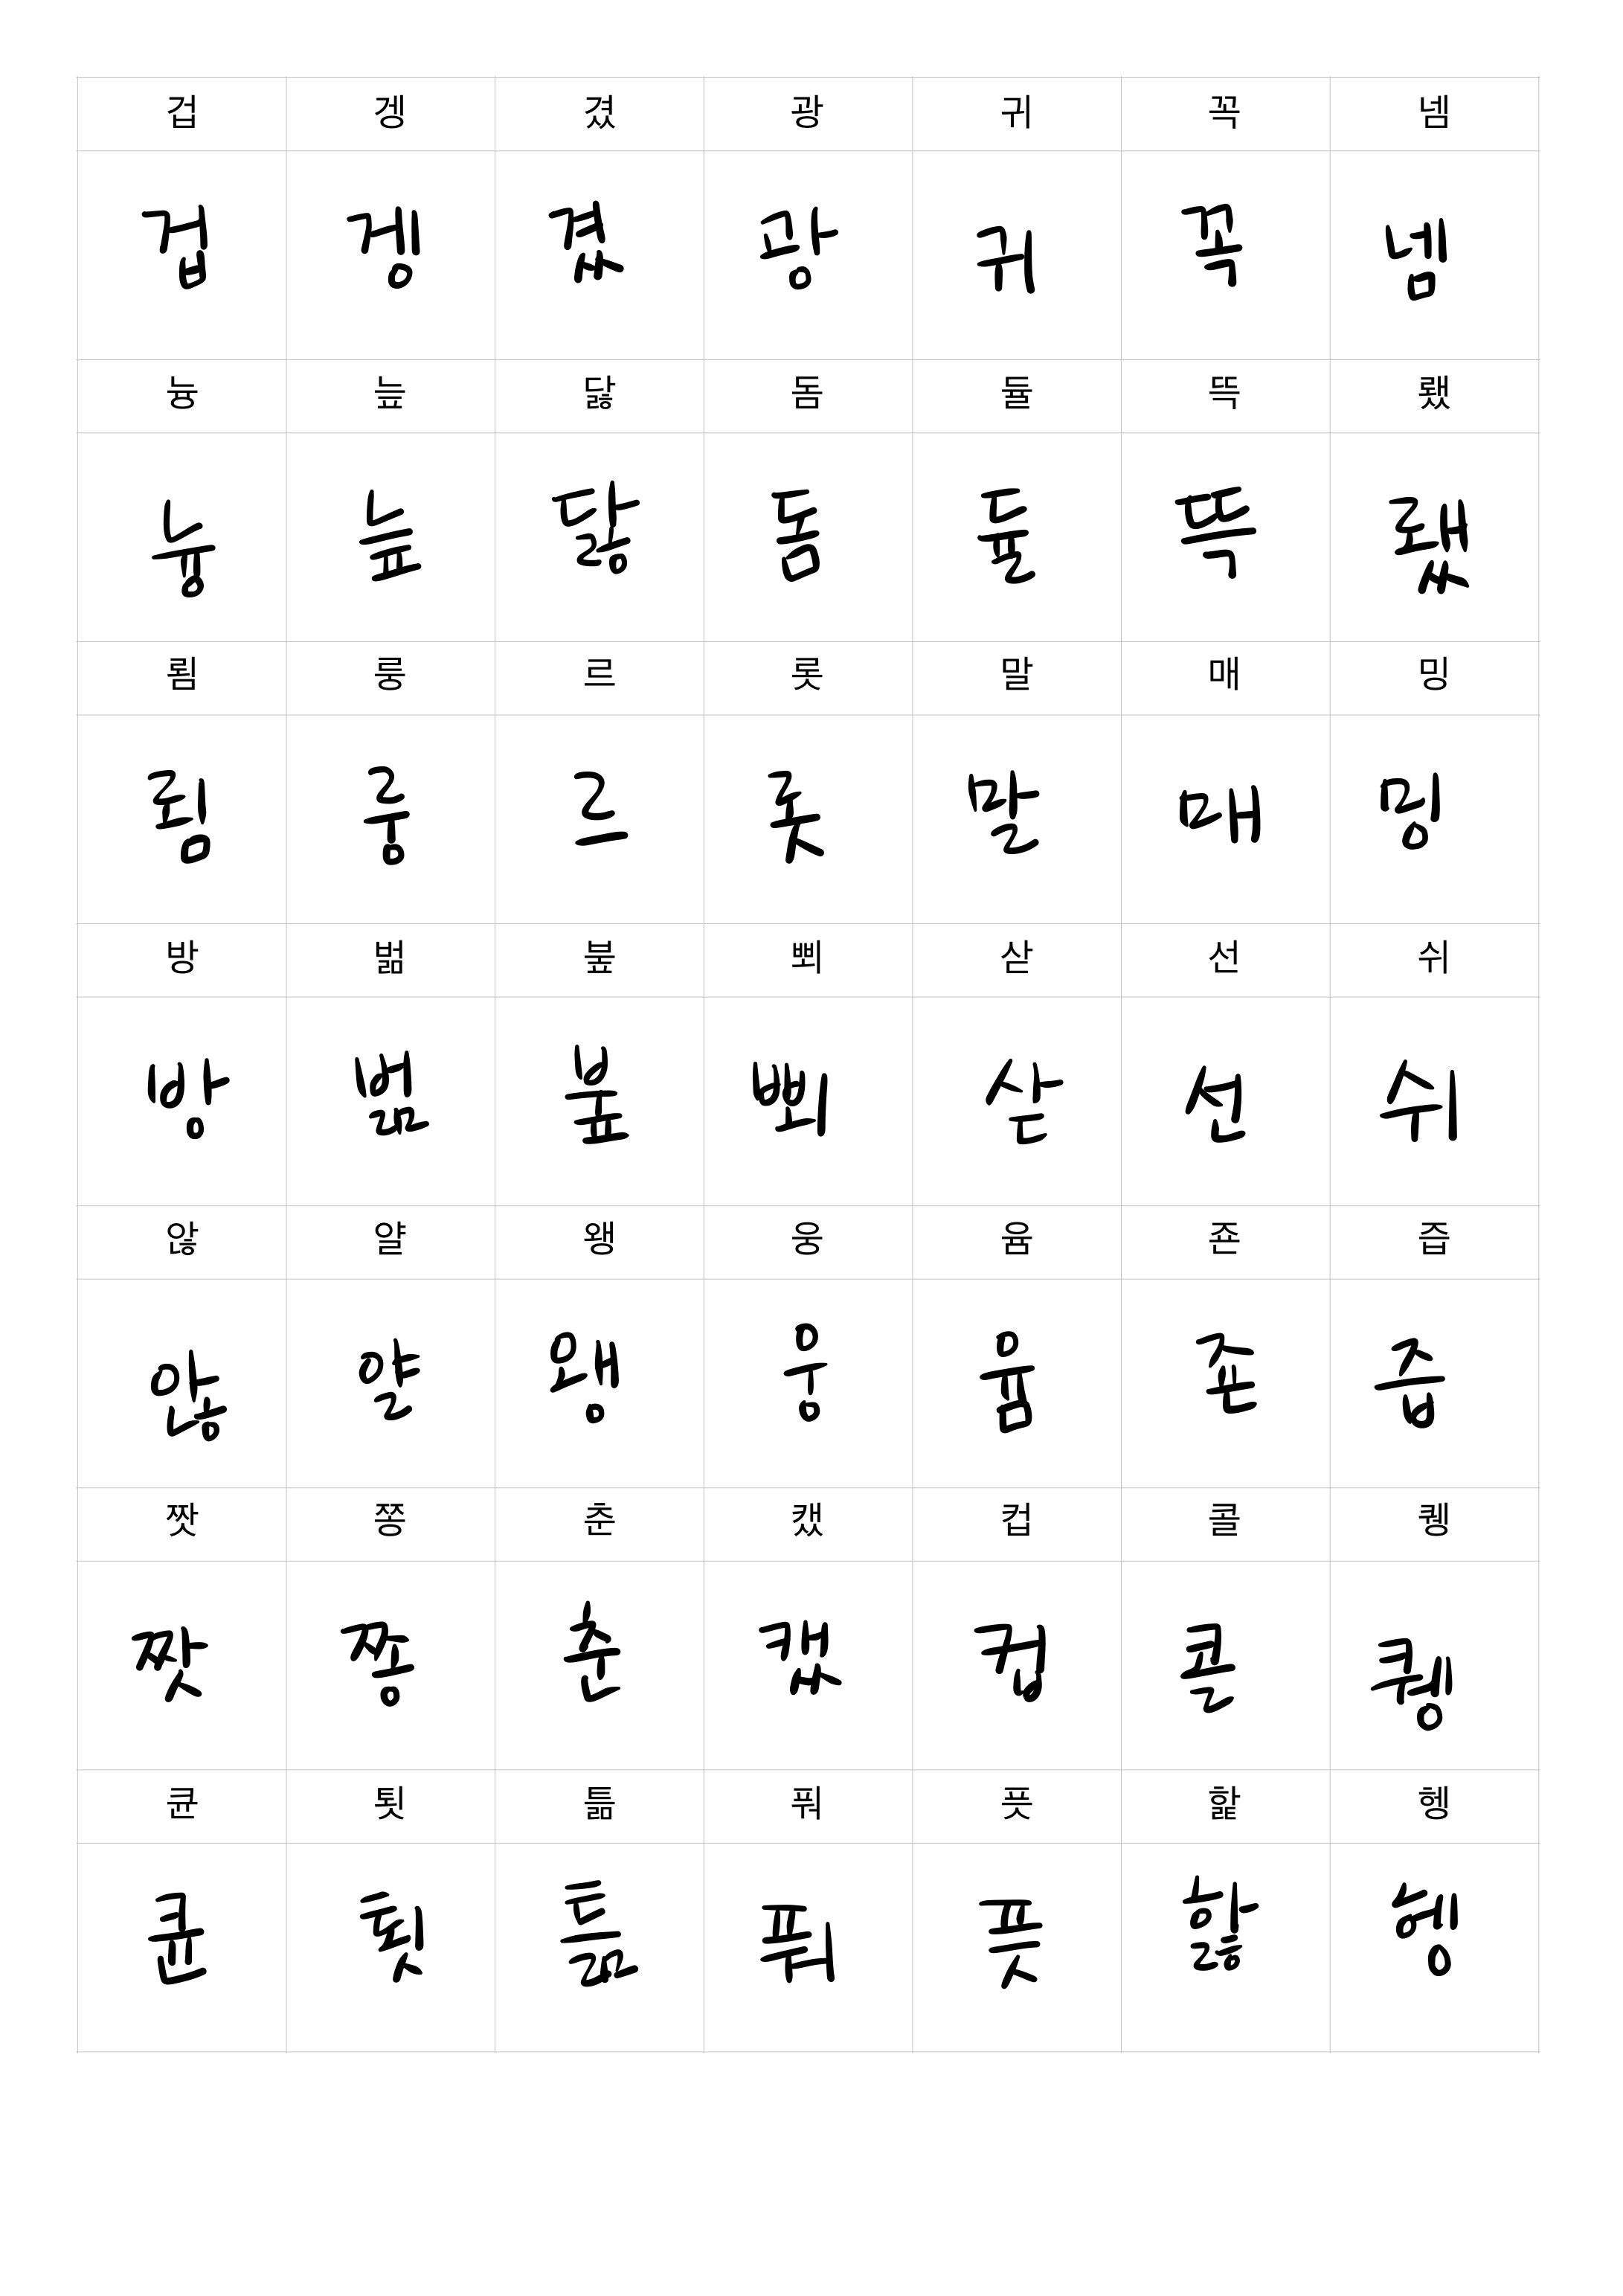 겁 겡 겼 광 귀 꼭 넴
겁 겡 겼 광 귀 꼭 넴
늉 늪 닳 돔 듈 뜩 뤘
늉 늪 닳 돔 듈 뜩 뤘
룀 룽 르 롯 말 매 밍
룀 룽 르 롯 말 매 밍
방 범 붚 뾔 삳 선 쉬
방 범 붚 뾔 삳 선 쉬
않 얄 왱 웅 윰 죤 즙
않 얄 왱 웅 윰 죤 즙
짯 쫑 춘 캤 컵 콜 퀭
짯 쫑 춘 캤 컵 콜 퀭
큔 툇 틂 풔 픗 핥 헹
큔 툇 틂 풔 픗 핥 헹